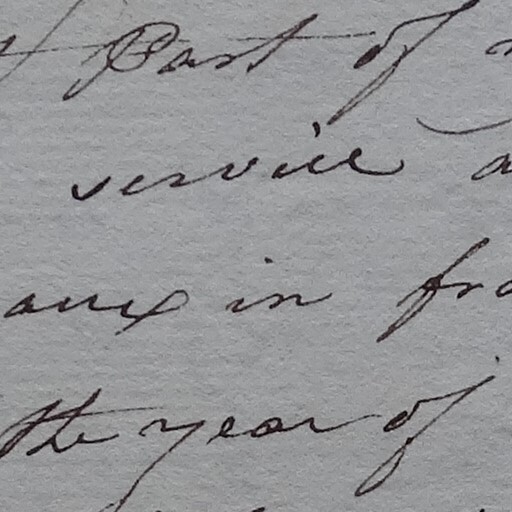 Part of
service
aux in
the year of